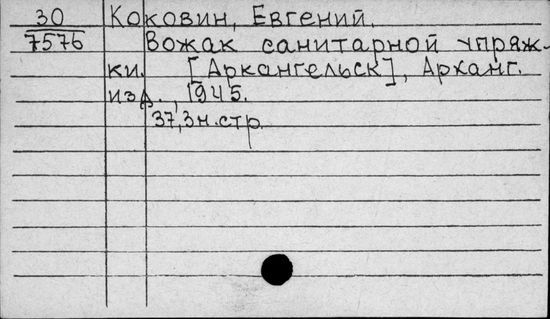 30
7576
Коковин, Евгений.
Вожак санитарной упряж-
ки. [Аркангельск], Арханг.
изд., 1945.
37,3н.стр.